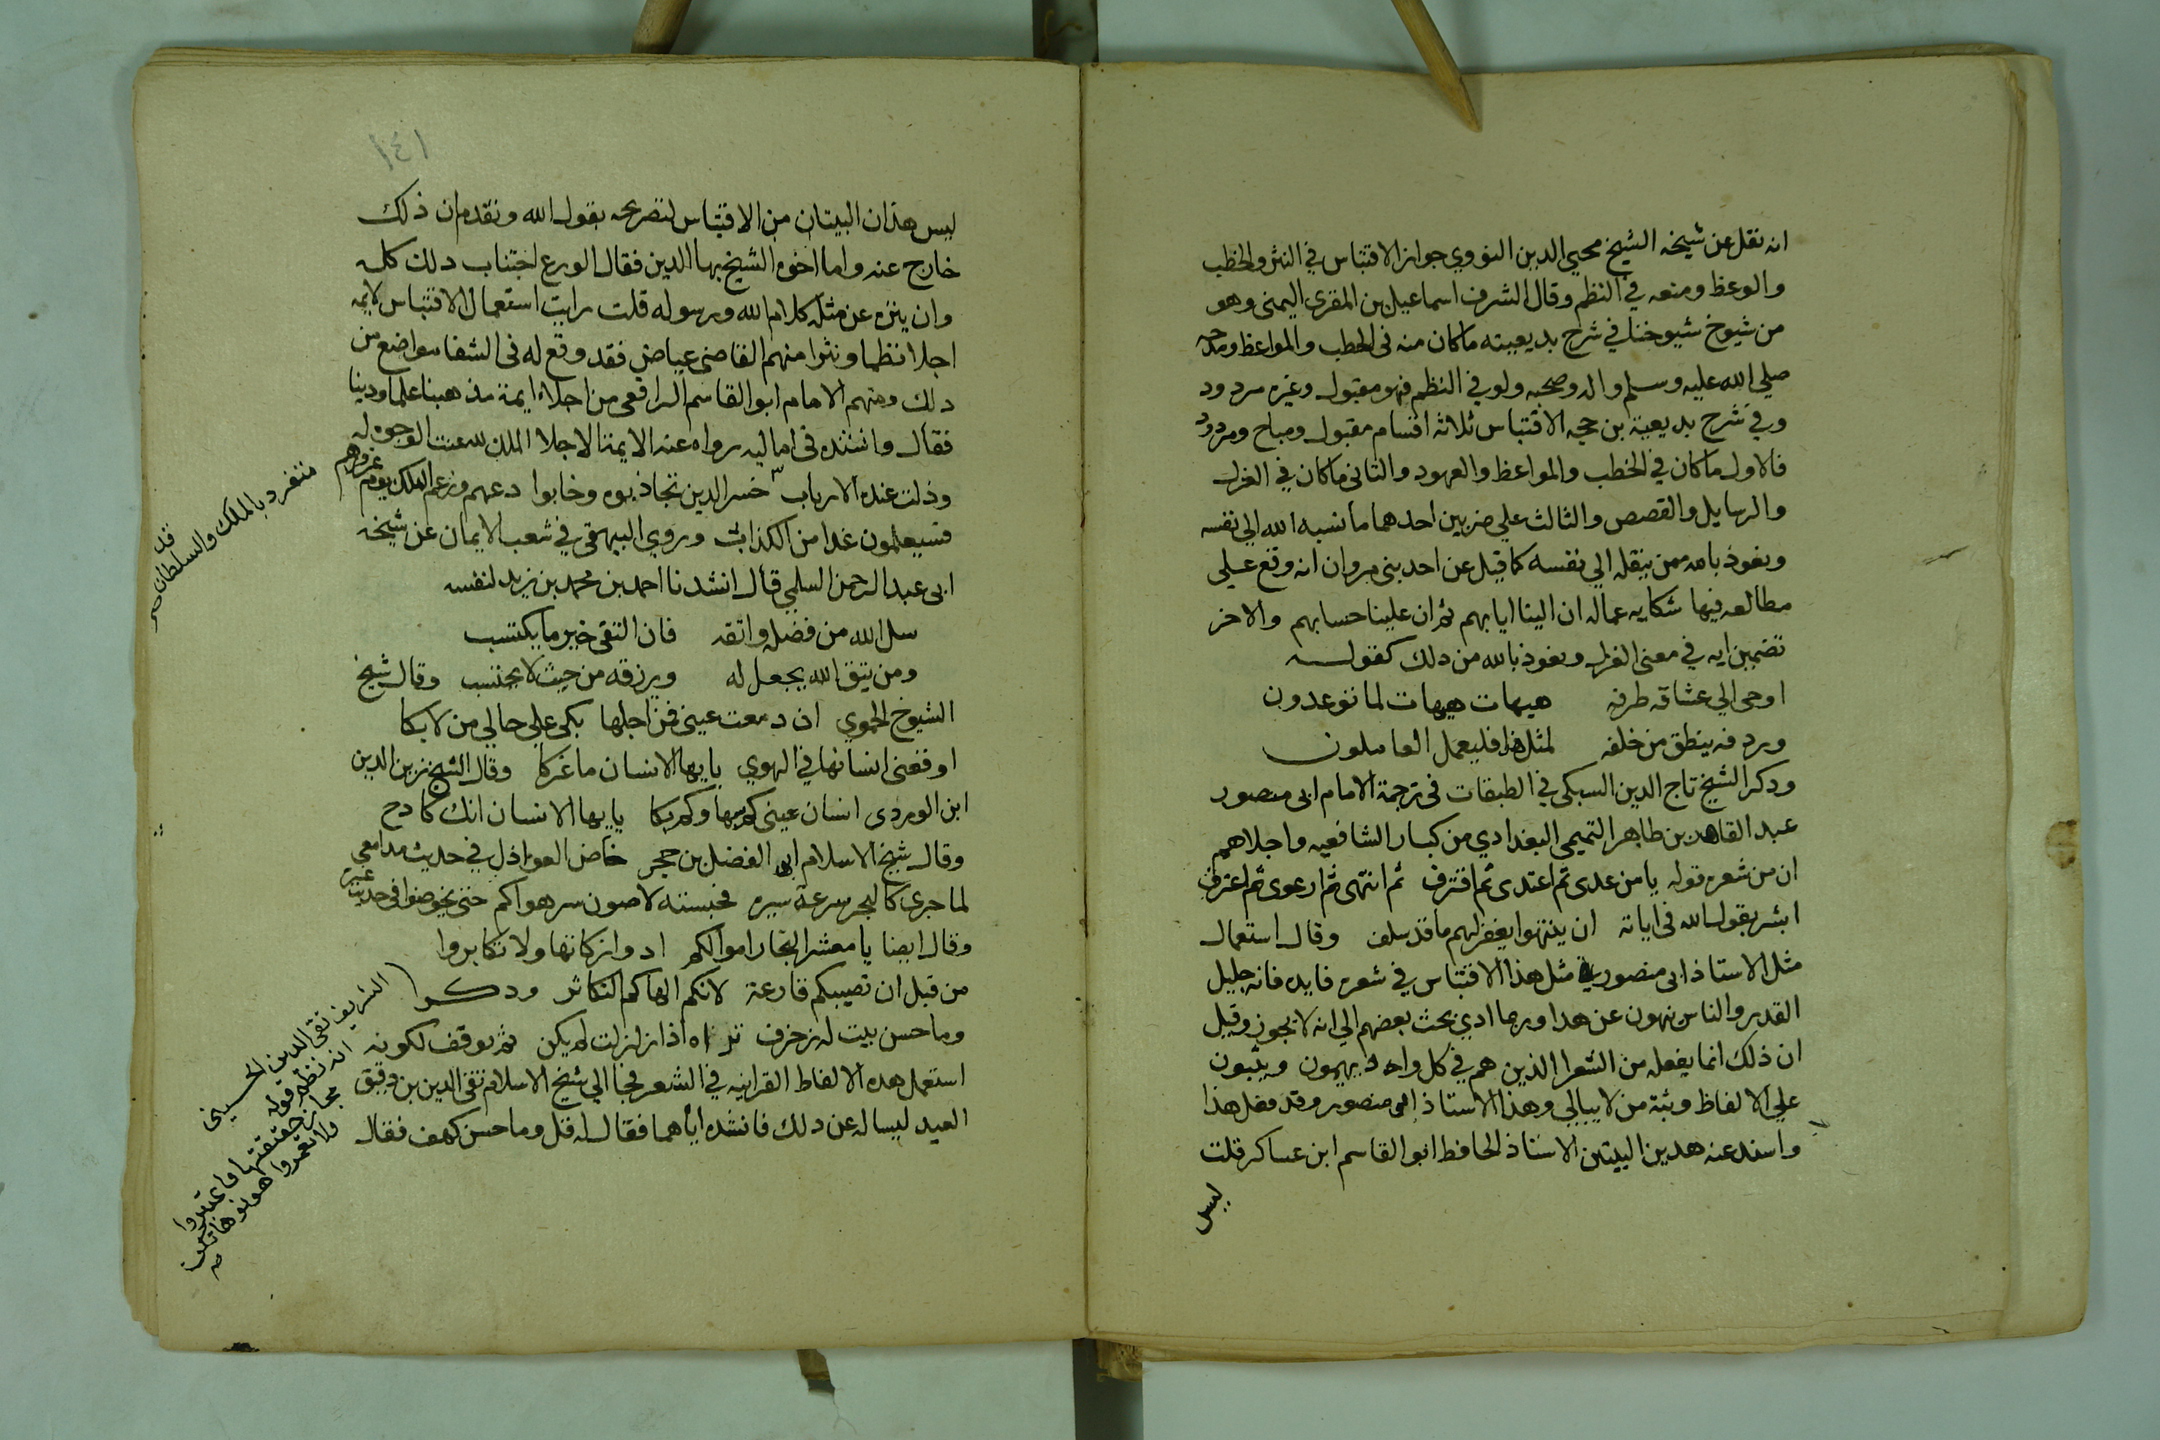 انه نقل عن شيخه الشيخ محيي الدين النووي جواز الاقتباس في النثر والخطب
والوعظ ومنعه في النظم وقال الشرف اسماعيل بن المقري اليمني وهو
من شيوخ شيوخنا في شرح بديعيته ماكان منه في الخطب والمواعظ ومدحه
صلي الله عليه وسلم واله وصحبه ولو في النظم فهو مقبول وغيره مردود
وفي شرح بديعية بن حجه الاقتباس ثلاثه اقسام مقبول ومباح ومردود
فالاول ماكان في الخطب والمواعظ والعهود والثاني ماكان في الغزل
والرسايل والقصص والثالث علي ضربين احدهما ما نسبه الله الي نفسه
ونعوذ بالله ممن ينقله الي نفسه كما قيل عن احد بني مروان انه وقع علي
مطالعه فيها شكايه عماله ان الينا ايابهم ثم ان علينا حسابهم والاخر
تضمين ايه في معني الهزل ونعوذ بالله من ذلك كقوله
اوحي الي عشاقه طرفه هيهات هيهات لما توعدون
وردفه ينطق من خلفه لمثل هذا فليعمل العاملون
وذكر الشيخ تاج الدين السبكي في الطبقات في ترجمة الامام ابي منصور
عبد القاهر بن طاهر التميمي البغدادي من كبار الشافعيه واجلاهم
ان من شعره قوله يا من عدى ثم اعتدى ثم اقترف ثم انتهى ثم ارعوى ثم اعترف
ابشر بقول الله في اياته ان ينتهوا يغفر لهم ما قد سلف وقال استعمال
مثل الاستاذ ابي منصور مثل هذا الاقتباس في شعره فايده فانه جليل
القدر والناس ينهون عن هدا وربما ادي بحث بعضهم الي انه لا يجوز وقيل
ان ذلك انما يفعله من الشعرا الذين هم في كل واد يهيمون ويثبون
علي الالفاظ وثبة من لا يبالي وهذا الاستاذ ابي منصور وقد فعل هذا
واسند عنه هدين البيتين الاستاذ الحافظ ابو القاسم ابن عساكر قلت
ليس
١٤١
ليس هذان البيتان من الاقتباس لتصريحه بقول الله وتقدم ان ذلك
خارج عنه واما اخوه الشيخ بها الدين فقال الورع اجتناب دلك كله
وان ينزه عن مثله كلام الله ورسوله قلت رايت استعمال الاقتباس لايمه
اجلا نظما ونثرا منهم القاضي عياض فقد وقع له في الشفا مواضع من
دلك ومنهم الامام ابو القاسم الرافعي من اجلاء ايمة مذهبنا علما ودينا
فقال وانشده في اماليه رواه عنه الايمة الاجلا الملك لله عنت الوجوه له
وذلت عنده الارباب خسر الدين تجاذبوه وخابوا دعهم وزعم الملك يوم غرورهم
متفرد بالملك والسلطان قد
فسيعلمون غدا من الكذاب وروي البيهقي في شعب الايمان عن شيخه
ابي عبد الرحمن السلمي قال انشدنا احمد بن محمد بن يزيد لنفسه
سل الله من فضله واتقه فان التقي خير ما يكتسب
ومن يتق الله يجعل له ويرزقه من حيث لا يحتسب وقال شيخ
الشيوخ الحموي ان دمعت عيني فمن اجلها بكى علي حالي من لا بكا
اوقعني انسانها في الهوي يايها الانسان ما غركا وقال الشيخ زين الدين
ابن الوردى انسان عيني يايها الانسان انك كادح
وقال شيخ الاسلام ابو الفضل بن حجر خاض العواذل في حديث مدامعي
لما جرى كالبحر سرعة سيره فحبسته لاصون سر هواكم حتي يخوضوا في حديث غيره
وقال ايضا يا معشر التجار اموالكم ادوا زكاتها ولا تكابروا
من قبل ان تصيبكم قارعة لانكم الهاكم التكاثر ودكروا
الشريف تقي الدين الحسيني
انه نظم قوله
مجاز حقيقتها فاعبروا
ولا تعمروا هونوها تهن
وما حسن بيت له زخرف تراه اذا زلزلت لم يكن ثم توقف لكونه
استعمل هده الالفاظ القرانيه في الشعر فجا الي شيخ الاسلام تقي الدين بن دقيق
العيد ليساله عن دلك فانشده اياهما فقال له قل وما حسن كهف فقال